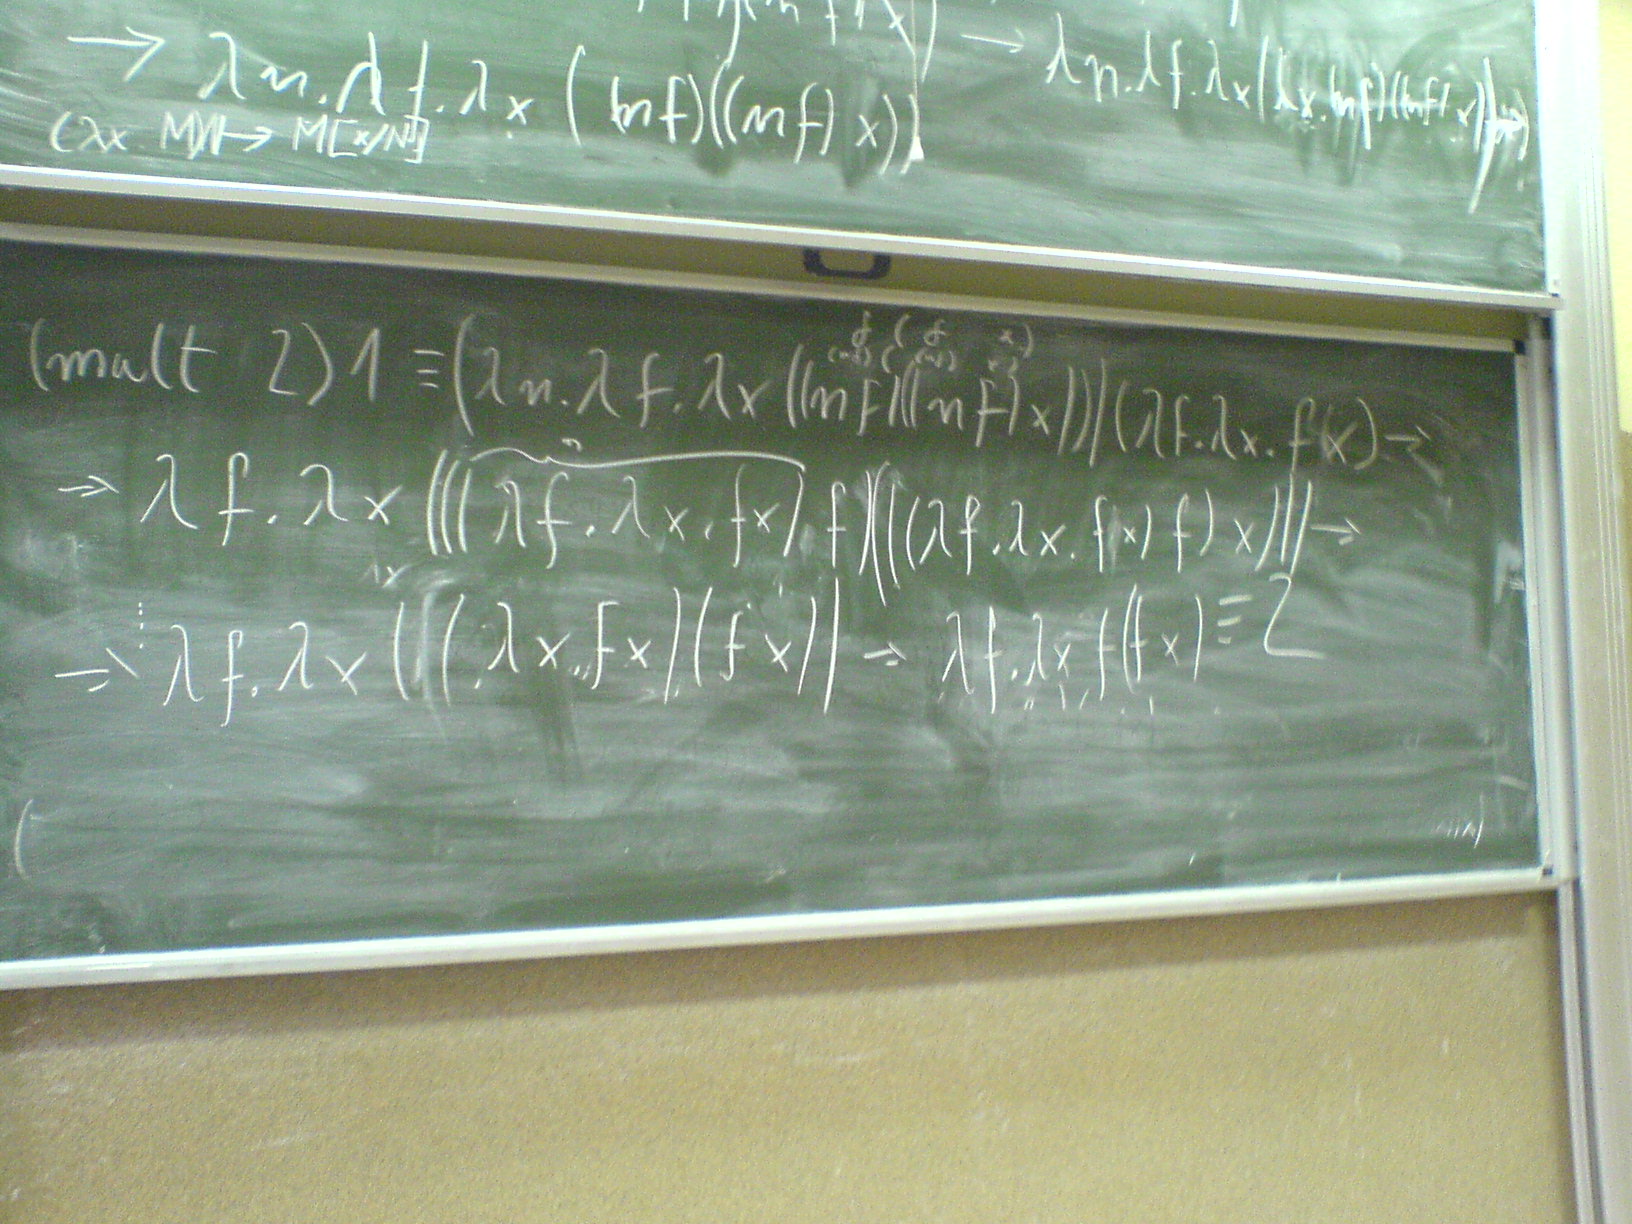 → λn.λf.λx ((nf)((nf) x)) → λn.λf.λx((λx.(nf)((nf) x))x)
(λx M)N → M[x/N]
f ( f x)
(mult 2)1 ≡ (λn.λf.λx((nf)((nf)x)))(λf.λx.f(x)→
n
→ λf.λx((((λf.λx.fx) f)(((λf.λx.fx) f) x)))→
→ λf.λx(((λx.fx)(fx)) → λf.λx f(fx) ≡ 2
(